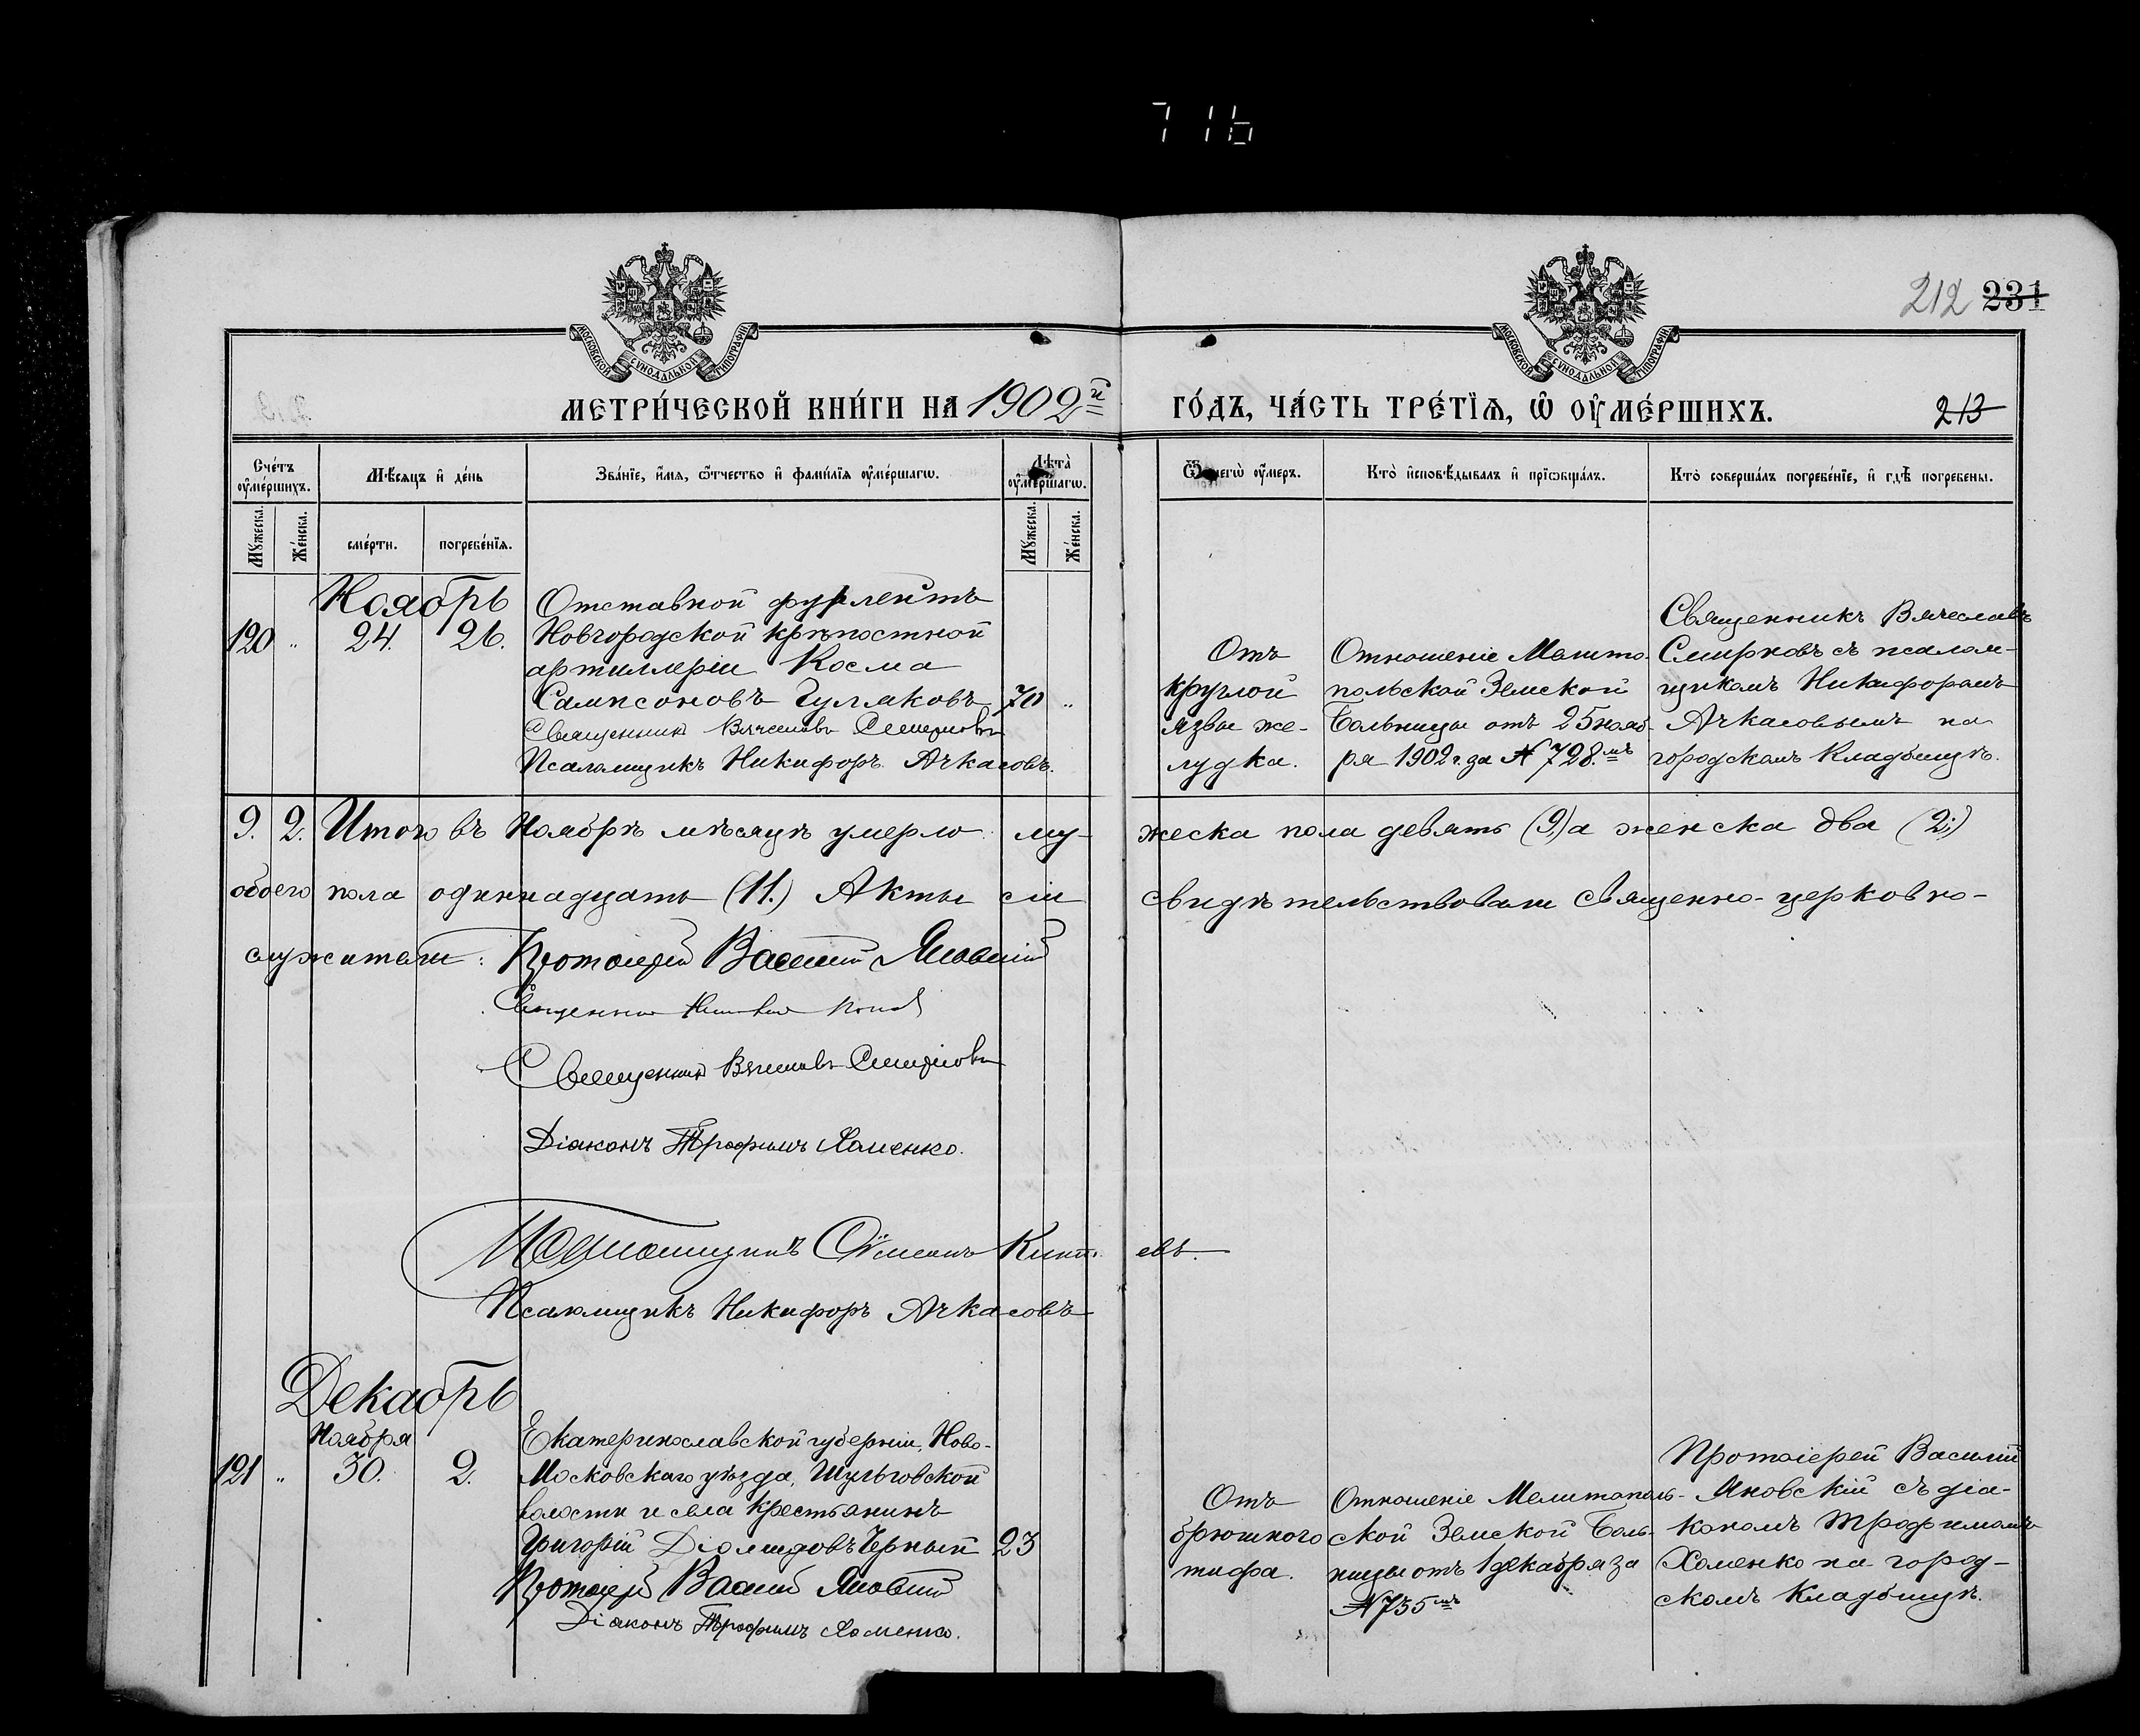 716
212 231
МОСКОВСКОЙ СУНОДАЛЬНОЙ ТИПОГРАФІИ
МОСКОВСКОЙ СУНОДАЛЬНОЙ ТИПОГРАФІИ
МЕТРИ́ЧЕСКОЙ КНИ́ГИ НА 1902й
ГО́ДЪ, ЧА́СТЬ ТРЕ́ТЇѦ, Ѡ ОУМЕ́РШИХЪ.
213
Сче́тъ оумершихъ.
Мѣсяцъ и де́нь
Зва́нїе, и́мя, ѻтчество и фами́лїя оуме́ршагѡ.
Лѣта̀ оуме́ршагѡ.
Ѿ чегѡ̀ оу́меръ.
Кто̀ исповѣ́дывалъ и прїѡбща́лъ.
Кто̀ соверша́лъ погребе́нїе, и гдѣ̀ погребены.
Му́жеска.
Же́нска.
сме́рти.
погребе́нїя.
Му́жеска.
Же́нска.
Ноябрь
120 " 24. 26.
Отставной фурлейтъ
Новгородской крѣпостной
артиллеріи Косма
Сампсоновъ Гулаковъ 70 "
Священникъ Вячеславъ Смирновъ
Псаломщикъ Никифоръ Ачкасовъ.
Отъ
круглой
язвы же-
лудка.
Отношеніе Мелито-
польской Земской
Больницы отъ 25 нояб-
ря 1902 г. за № 728.мъ
Священникъ Вячеславъ
Смирновъ съ псалом-
щикомъ Никифоромъ
Ачкасовымъ на
городскомъ кладбищѣ.
9. 2. Итого въ Ноябрѣ мѣсяцѣ умерло му-
жеска пола девять (9) а женска два (2)
обоего пола одиннадцать (11.) Акты сіи
свидѣтельствовали Священно-церковно-
служители: Протоіерей Василій Яновскій
Священникъ
Священникъ Вячеславъ Смирновъ
Діаконъ Трофимъ Хоменко.
Псаломщикъ Сѵмеонъ
евъ.
Псаломщикъ Никифоръ Ачкасовъ
Декабрь
Ноября
121 " 30. 2.
Екатеринославской губерніи, Ново-
Московскаго уѣзда, Шульговской
волости и села крестьянинъ
Григорій Діомидовъ Черный 23
Протоіерей Василій Яновскій
Діаконъ Трофимъ Хоменко.
Отъ
брюшного
тифа.
Отношеніе Мелитополь-
ской Земской Боль-
ницы отъ 1 декабря за
№ 735мъ
Протоіерей Василій
Яновскій съ діа-
кономъ Трофимомъ
Хоменко на город-
скомъ кладбищѣ.